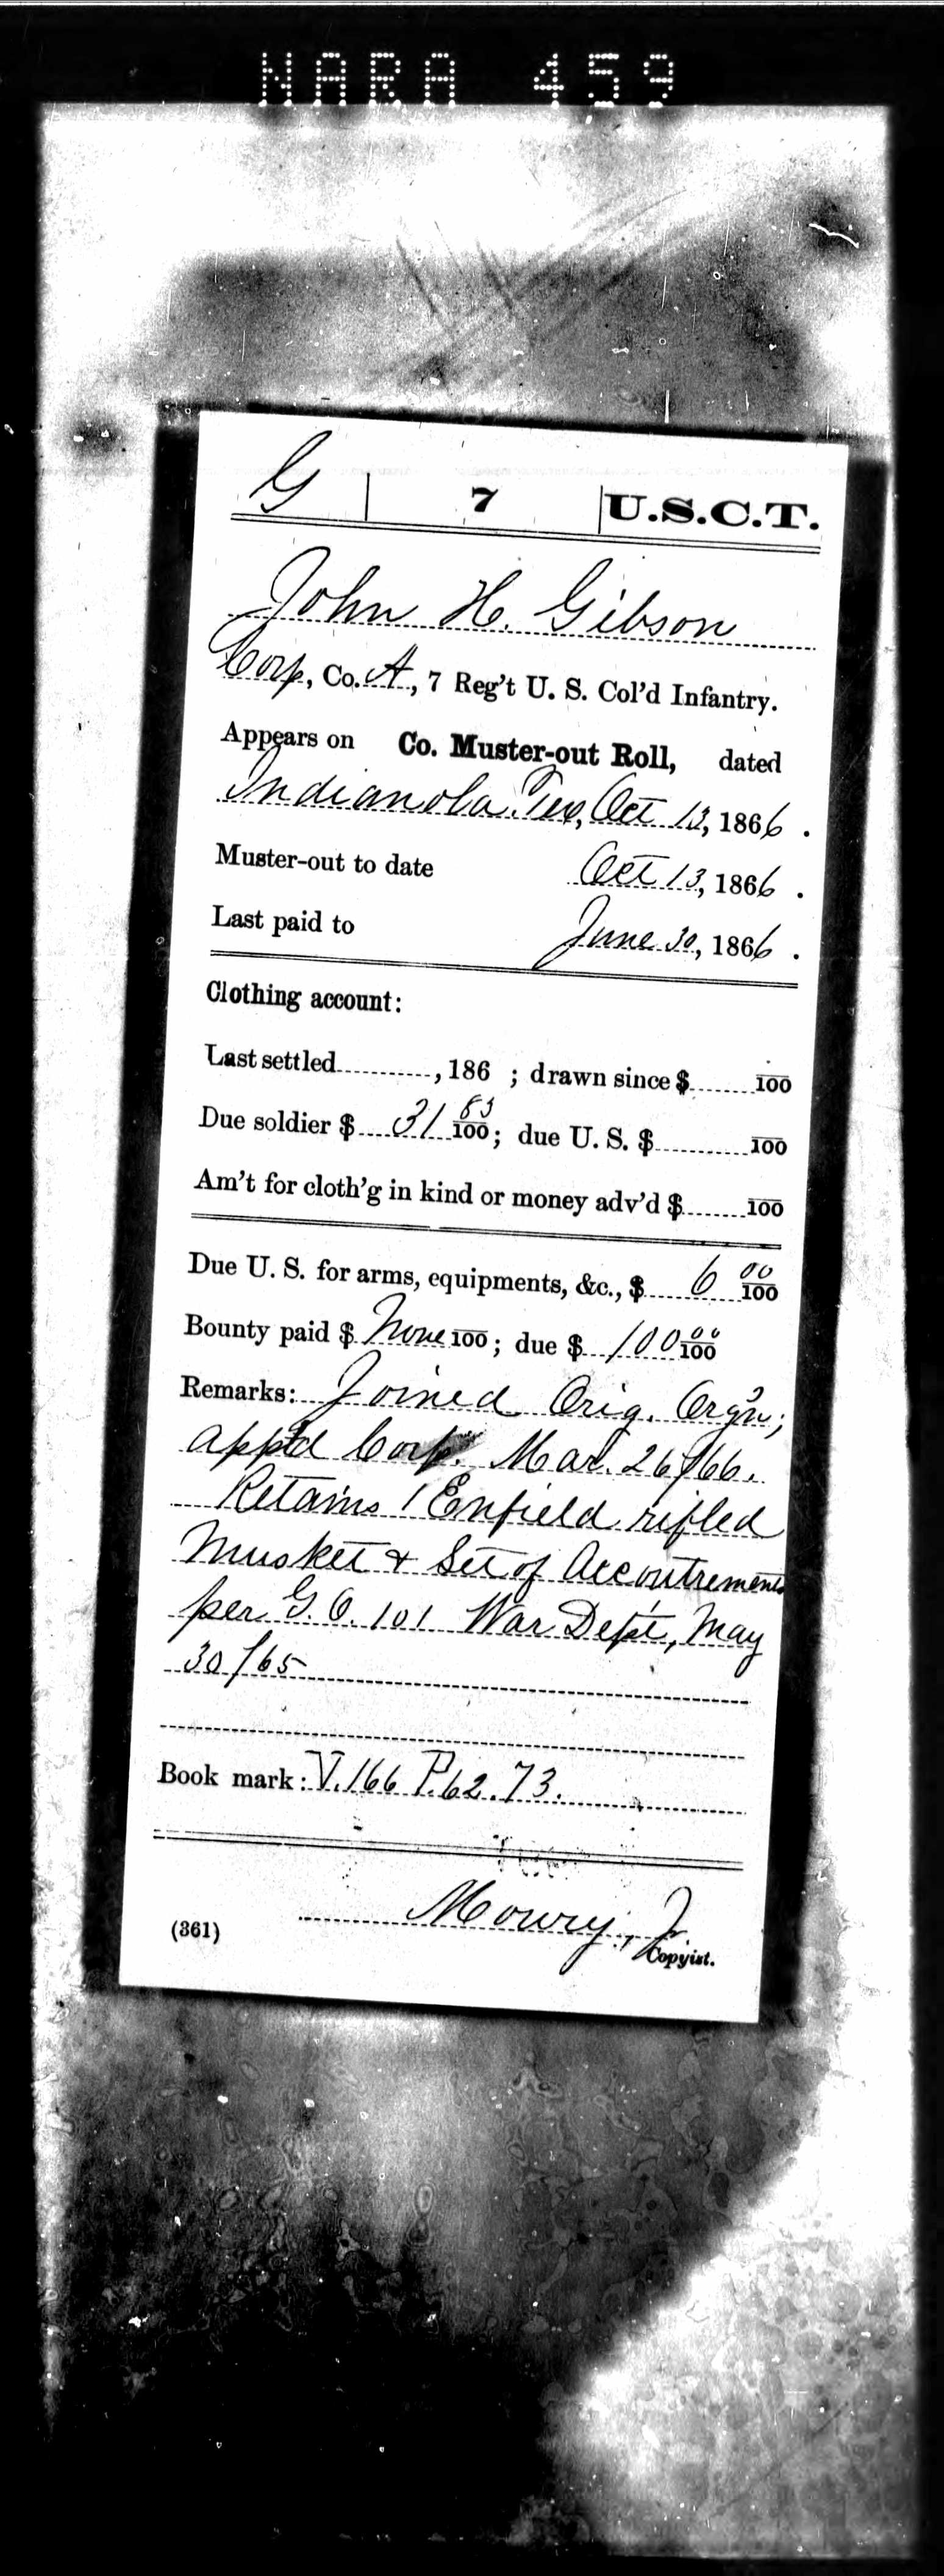 NARA 459
G | 7 | U.S.C.T.
John H. Gibson
Corp, Co. A, 7 Reg't U. S. Col'd Infantry.
Appears on Co. Muster-out Roll, dated
Indianola Tex, Oct 13, 1866.
Muster-out to date Oct 13, 1866.
Last paid to June 30, 1866.
Clothing account:
Last settled, 186 ; drawn since $ 100
Due soldier $ 31 83/100; due U. S. $ 100
Am't for cloth'g in kind or money adv'd $ 100
Due U. S. for arms, equipments, &c., $ 6 00/100
Bounty paid $ None 100; due $ 100 00/100
Remarks: Joined Orig. Org'n;
appt'd Corp. Mar. 26/66.
Retains 1 Enfield rifled
Musket & Set of Accoutrements
per G.O. 101 War Dept, May
30/65
Book mark: V.166 P.62.73.
Mowry, J.
(361) Copyist.